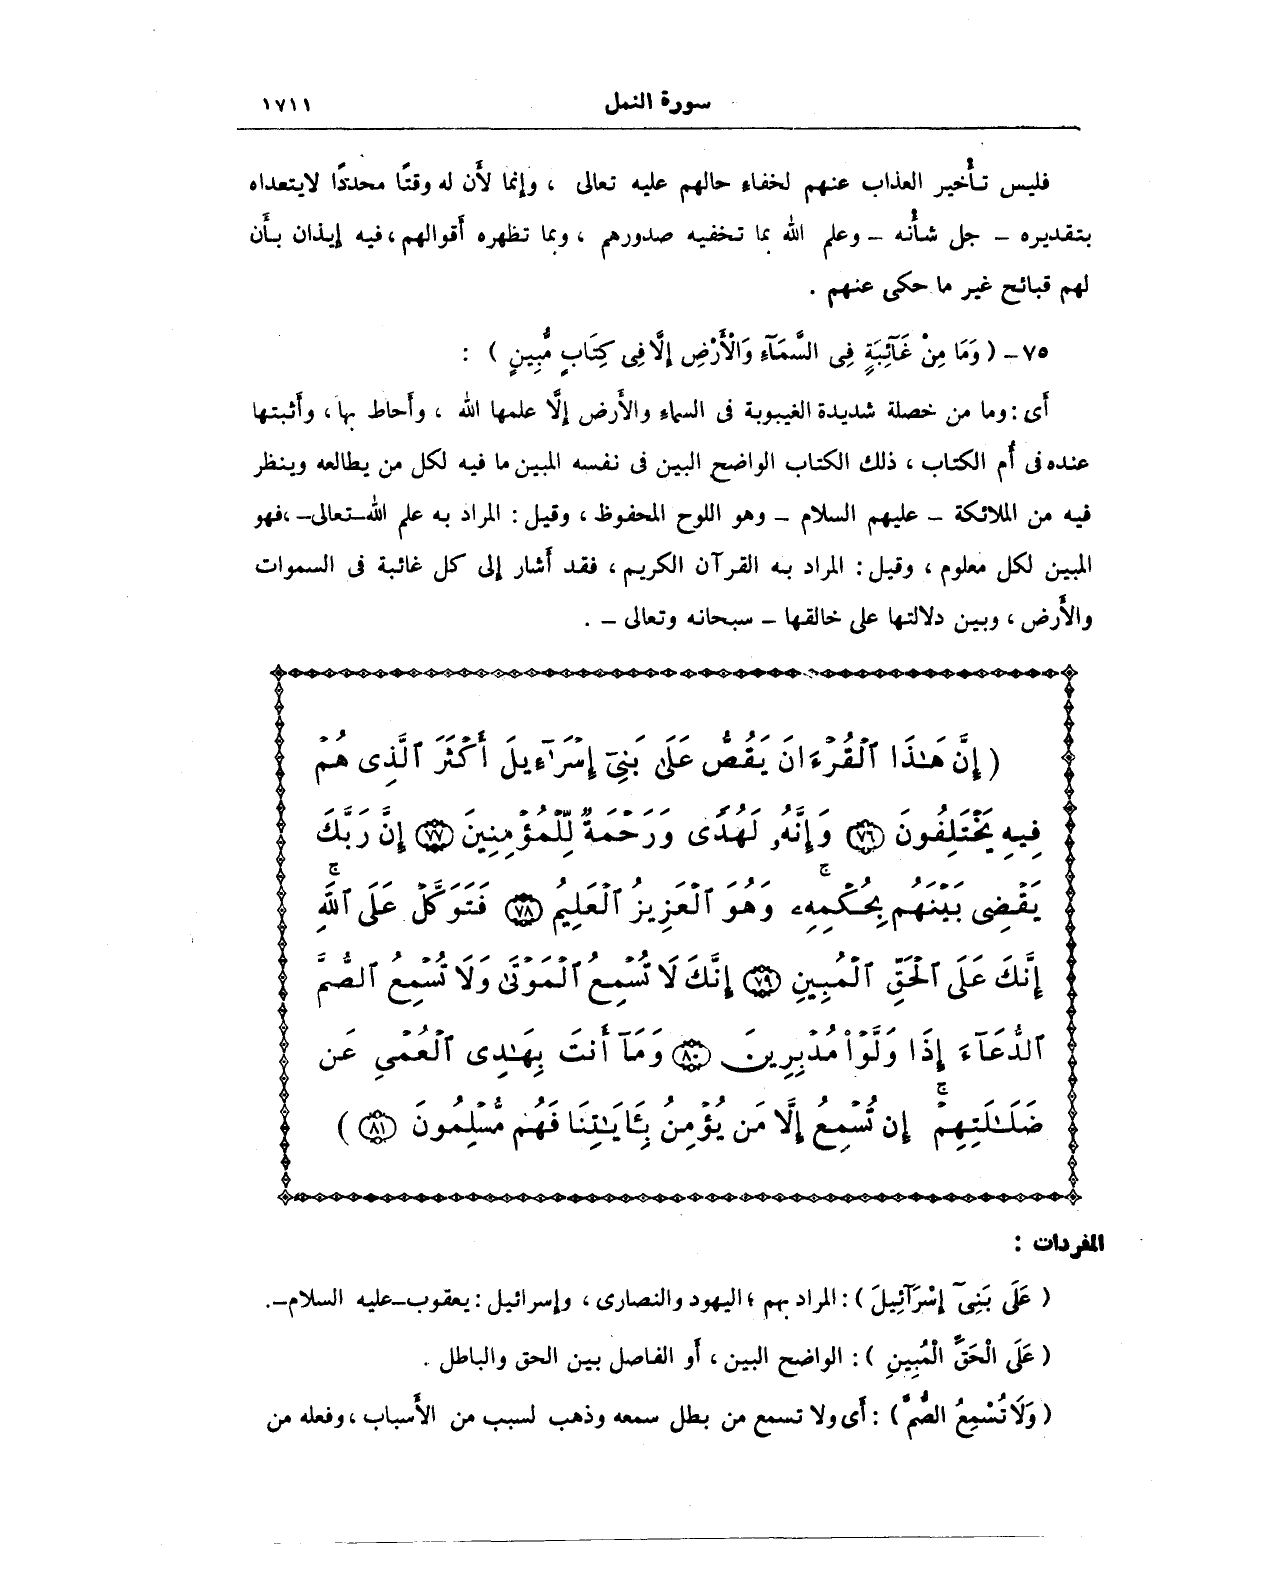 سورة النمل ١٧١١
فليس تأخير العذاب عنهم لخفاء حالهم عليه تعالى ، وإنما لأن له وقتًا محددًا لايتعداه
بتقديره – جل شأنه – وعلم الله بما تخفيه صدورهم ، وبما تظهره أقوالهم، فيه إيذان بأن
لهم قبائح غير ما حكى عنهم .
٧٥ – ( وَمَا مِنْ غَآئِبَةٍ فِى السَّمَآءِ وَالْأَرْضِ إِلَّا فِى كِتَابٍ مُّبِينٍ ) :
أى : وما من خصلة شديدة الغيبوبة فى السماء والأرض إلَّا علمها الله ، وأحاط بها ، وأثبتها
عنده فى أُم الكتاب ، ذلك الكتاب الواضح البين فى نفسه المبين ما فيه لكل من يطالعه وينظر
فيه من الملائكة – عليهم السلام – وهو اللوح المحفوظ ، وقيل : المراد به علم الله–تعالى–،فهو
المبين لكل معلوم ، وقيل : المراد به القرآن الكريم ، فقد أشار إلى كل غائبة فى السموات
والأرض ، وبين دلالتها على خالقها – سبحانه وتعالى – .
( إِنَّ هَـٰذَا ٱلْقُرْءَانَ يَقُصُّ عَلَىٰ بَنِىٓ إِسْرَٰٓءِيلَ أَكْثَرَ ٱلَّذِى هُمْ
فِيهِ يَخْتَلِفُونَ ٧٦ وَإِنَّهُۥ لَهُدًى وَرَحْمَةٌ لِّلْمُؤْمِنِينَ ٧٧ إِنَّ رَبَّكَ
يَقْضِى بَيْنَهُم بِحُكْمِهِۦ ۚ وَهُوَ ٱلْعَزِيزُ ٱلْعَلِيمُ ٧٨ فَتَوَكَّلْ عَلَى ٱللَّهِ ۖ
إِنَّكَ عَلَى ٱلْحَقِّ ٱلْمُبِينِ ٧٩ إِنَّكَ لَا تُسْمِعُ ٱلْمَوْتَىٰ وَلَا تُسْمِعُ ٱلصُّمَّ
ٱلدُّعَآءَ إِذَا وَلَّوْا۟ مُدْبِرِينَ ٨٠ وَمَآ أَنتَ بِهَـٰدِى ٱلْعُمْىِ عَن
ضَلَـٰلَتِهِمْ ۚ إِن تُسْمِعُ إِلَّا مَن يُؤْمِنُ بِـَٔايَـٰتِنَا فَهُم مُّسْلِمُونَ ٨١ )
المفردات :
( عَلَى بَنِىٓ إِسْرَآئِيلَ ) : المراد بهم ؛ اليهود والنصارى ، وإسرائيل : يعقوب–عليه السلام–.
( عَلَى الْحَقِّ الْمُبِينِ ) : الواضح البين ، أو الفاصل بين الحق والباطل .
( وَلَا تُسْمِعُ الصُّمَّ ) : أى ولا تسمع من بطل سمعه وذهب لسبب من الأسباب ، وفعله من